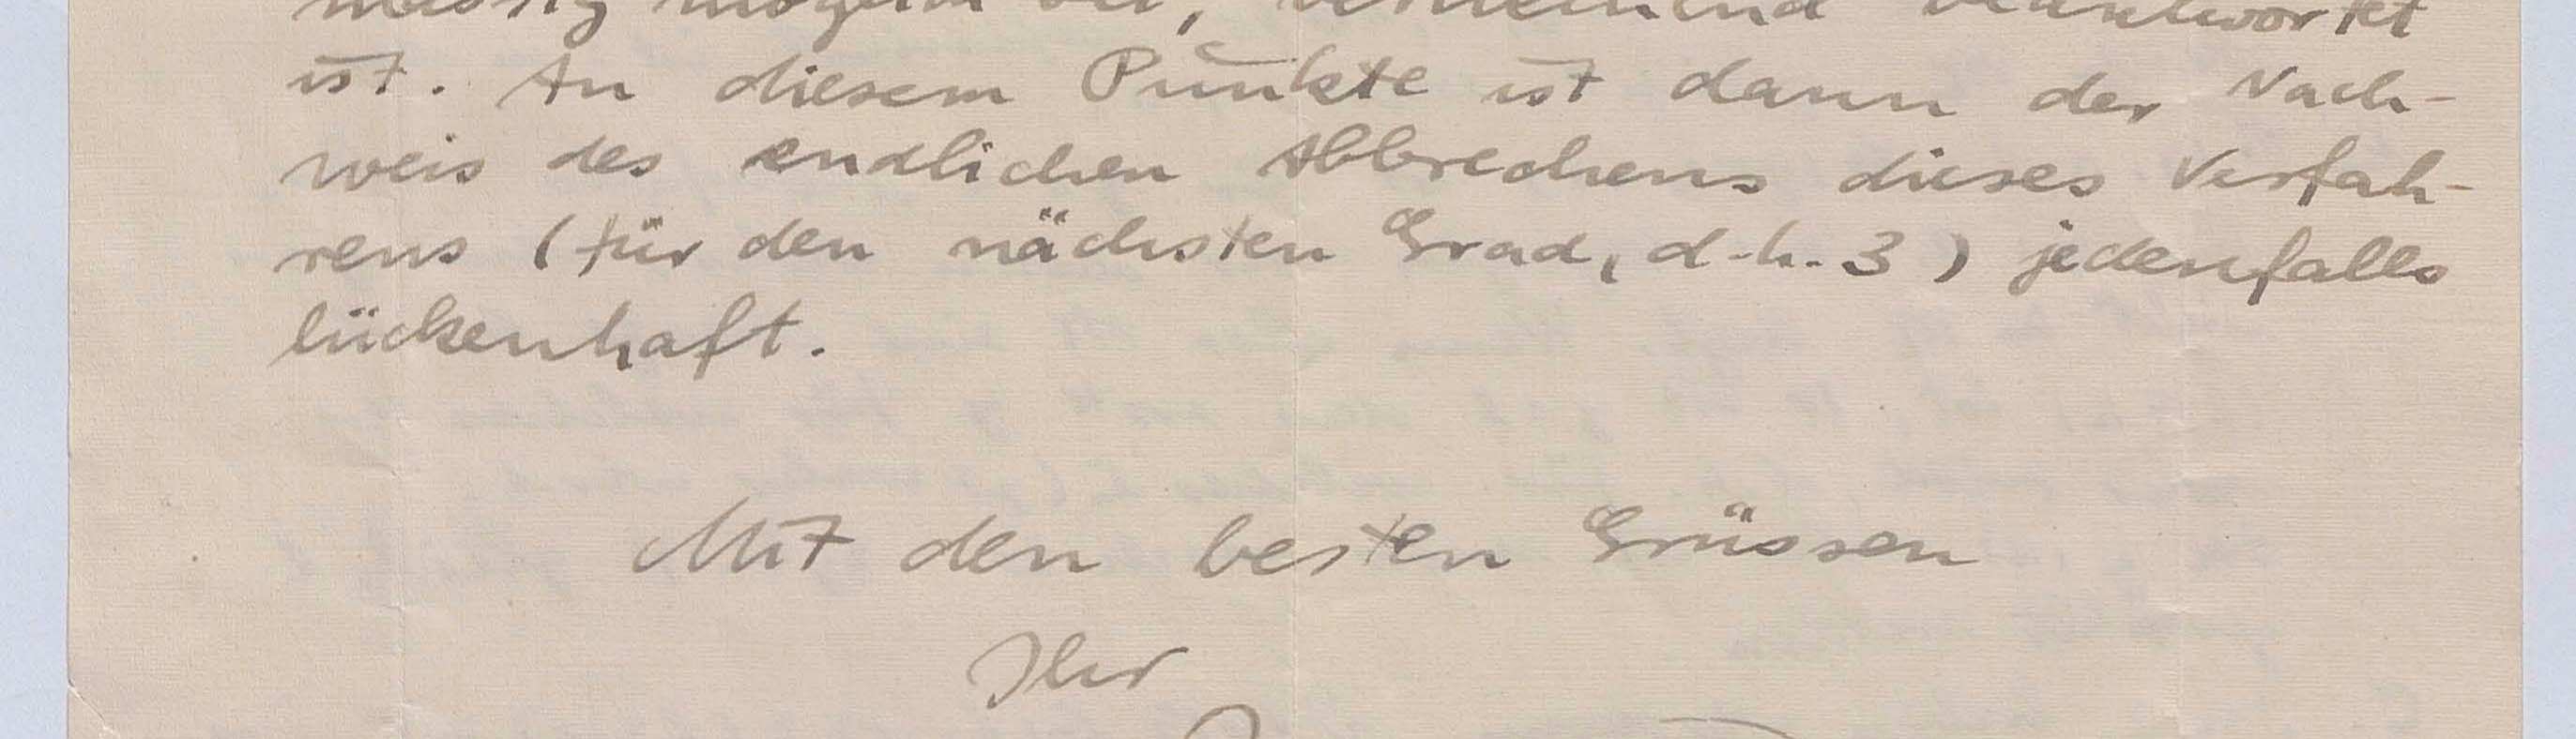 mässig möglich sei, verneinend beantwortet
ist. An diesem Punkte ist dann der Nach-
weis des endlichen Abbrechens dieses Verfah-
rens (für den nächsten Grad, d.h. 3) jedenfalls
lückenhaft.
Mit den besten Grüssen
Ihr